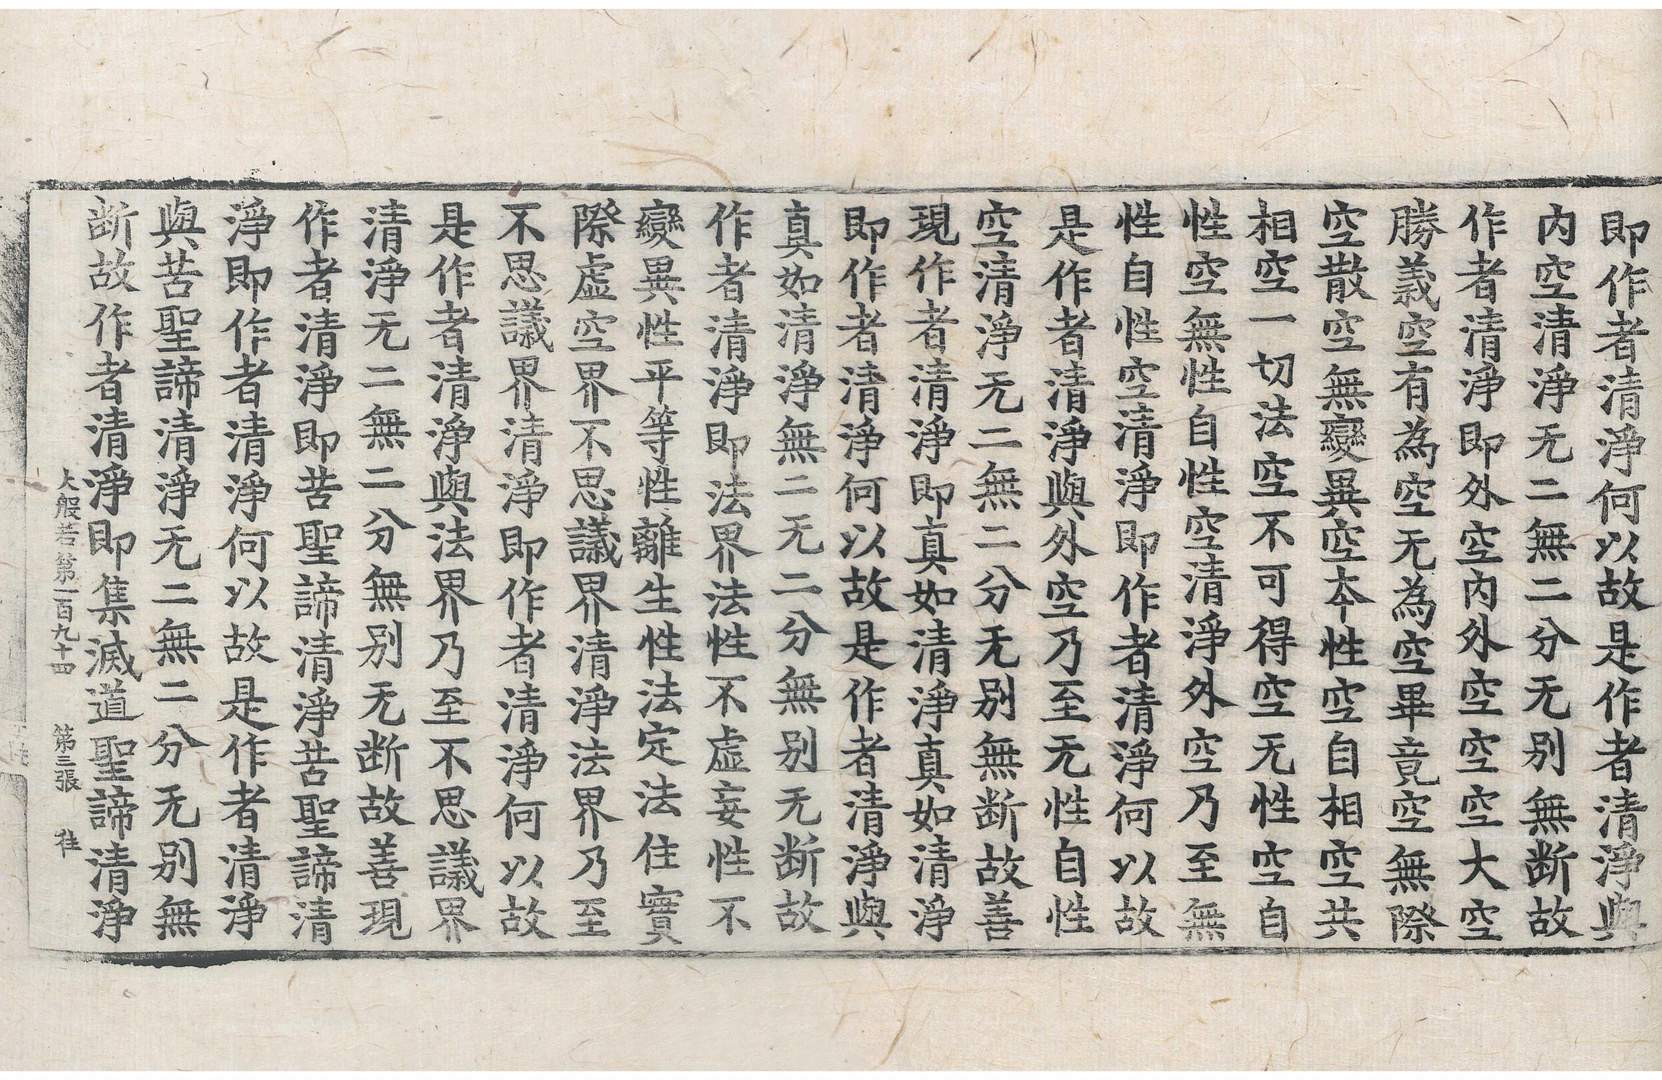 即作者清淨何以故是作者清淨與
内空清淨无二無二分无别無断故
作者清淨即外空内外空空空大空
勝義空有為空无為空畢竟空無際
空散空無變異空夲性空自相空共
相空一切法空不可得空无性空自
性空無性自性空清淨外空乃至無
性自性空清淨即作者清淨何以故
是作者清淨與外空乃至无性自性
空清淨无二無二分无别無断故善
現作者清淨即真如清淨真如清淨
即作者清淨何以故是作者清淨與
真如清淨無二无二分無别无断故
作者清淨即法界法性不虛妄性不
變異性平等性離生性法定法住實
際虛空界不思議界清淨法界乃至
不思議界清淨即作者清淨何以故
是作者清淨與法界乃至不思議界
清淨无二無二分無别无断故善現
作者清淨即苦聖諦清淨苦聖諦清
淨即作者清淨何以故是作者清淨
與苦聖諦清淨无二無二分无别無
断故作者清淨即集滅道聖諦清淨
大般若第一百九十四 第三張 往